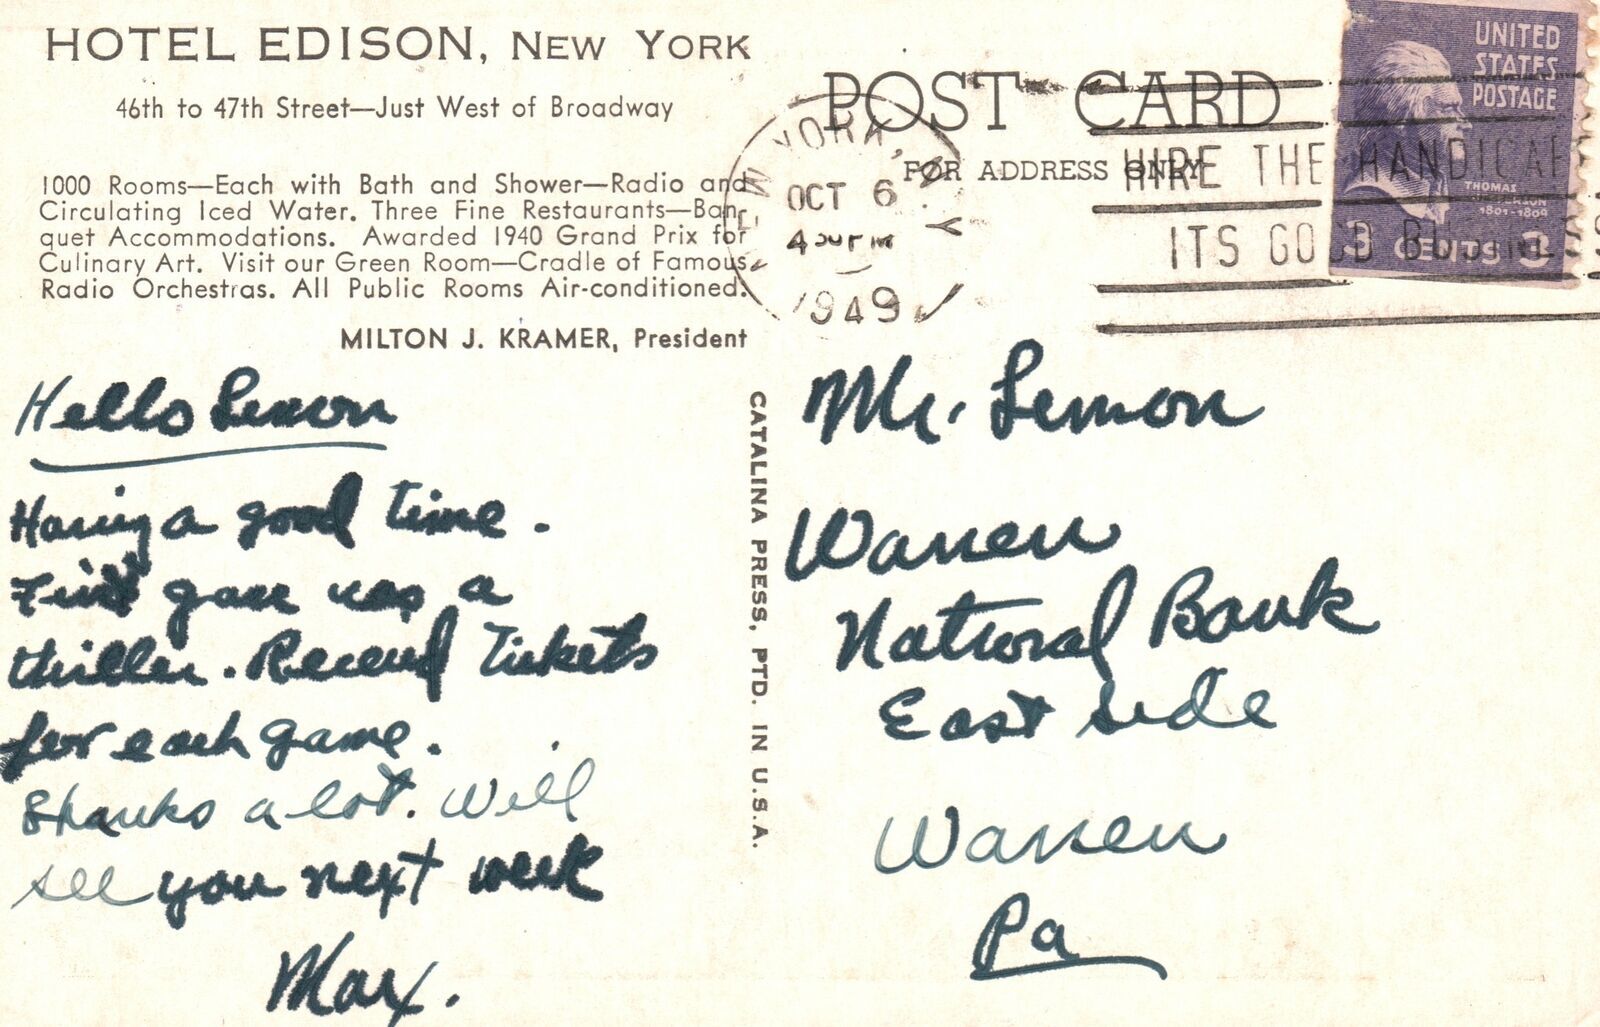 HOTEL EDISON, NEW YORK
46th to 47th Street—Just West of Broadway
1000 Rooms—Each with Bath and Shower—Radio and
Circulating Iced Water. Three Fine Restaurants—Ban-
quet Accommodations. Awarded 1940 Grand Prix for
Culinary Art. Visit our Green Room—Cradle of Famous
Radio Orchestras. All Public Rooms Air-conditioned.
MILTON J. KRAMER, President
Hello Lemon
Having a good time.
First game was a
thriller. Received Tickets
for each game.
Thanks a lot. Will
see you next week
Max.
CATALINA PRESS, PTD. IN U.S.A.
POST CARD
FOR ADDRESS ONLY
NEW YORK, N.Y.
OCT 6
4 PM
1949
HIRE THE HANDICAP
ITS GOOD BUSINESS
UNITED
STATES
POSTAGE
THOMAS
JEFFERSON
1801-1809
3 CENTS 3
Mr. Lemon
Warren
National Bank
East Side
Warren
Pa